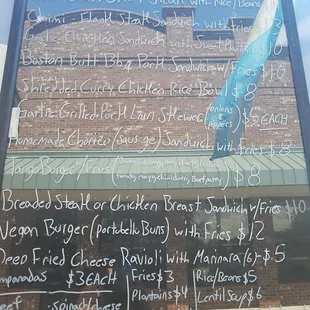 with Rice/Beans
Chimi - Flank Steak Sandwich with Fries
Garlic Chicken Sandwich with Sweet Plantains 10
Boston Butt BBQ Pork Sandwich w/ Fries $10
Shredded Curry Chicken Rice Bowl $8
Garlic Grilled Pork Loin Skewer (onions & Peppers) $5 EACH
Homemade Chorizo (Sausage) Sandwich with Fries $8
Burger/Fries $8
Breaded Steak or Chicken Breast Sandwich w/Fries $10
Vegan Burger (portobello Buns) with Fries $12
Deep Fried Cheese Ravioli with Marinara (6) - $5
mpanadas $3 EACH Fries $3 Rice/Beans $5
eef - spinach/cheese Plantains $4 Lentil Soup $6